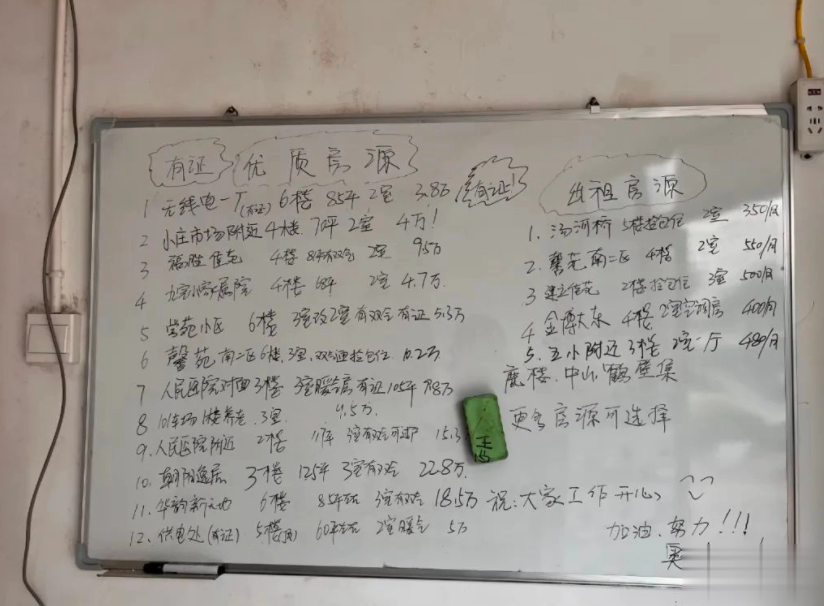 有证 优质房源
1 无线电一厂(有证) 6楼 85平 2室 3.8万
2 小庄市场附近 4楼 70平 2室 4万!
3 福胜佳苑 4楼 84平有双气 2室 9.5万
4 九室小家属院 4楼 68平 2室 4.7万
5 莹苑小区 6楼 3室改2室有双气有证 5.3万
6 馨苑南二区 6楼, 3室, 双气拎包住 10.2万
7 人民医院对面 3楼 3室暖气高 有证 105平 7.8万
8 101车场 1楼养老 3室 4.5万
9. 人民医院附近 2楼 3室有双气可 15.3
10. 朝阳逸居 3楼 125平 3室有双气 22.8万
11. 华韵新天地 6楼 85平左右 3室有双气 18.5万
12. 供电处(有证) 5楼 60平左右 2室暖气 5万
有证!
出租房源
1. 汤河桥 5楼拎包住 2室 350/月
2. 馨苑南二区 4楼 2室 550/月
3 建立佳苑 2楼拎包住 3室 500/月
4 金博大东 4楼 2室空调房 400/月
5. 五小附近 3楼 2室一厅 480/月
鹿楼、中山、鹤壁集
更多房源可选择
祝:大家工作开心
加油、努力!!!